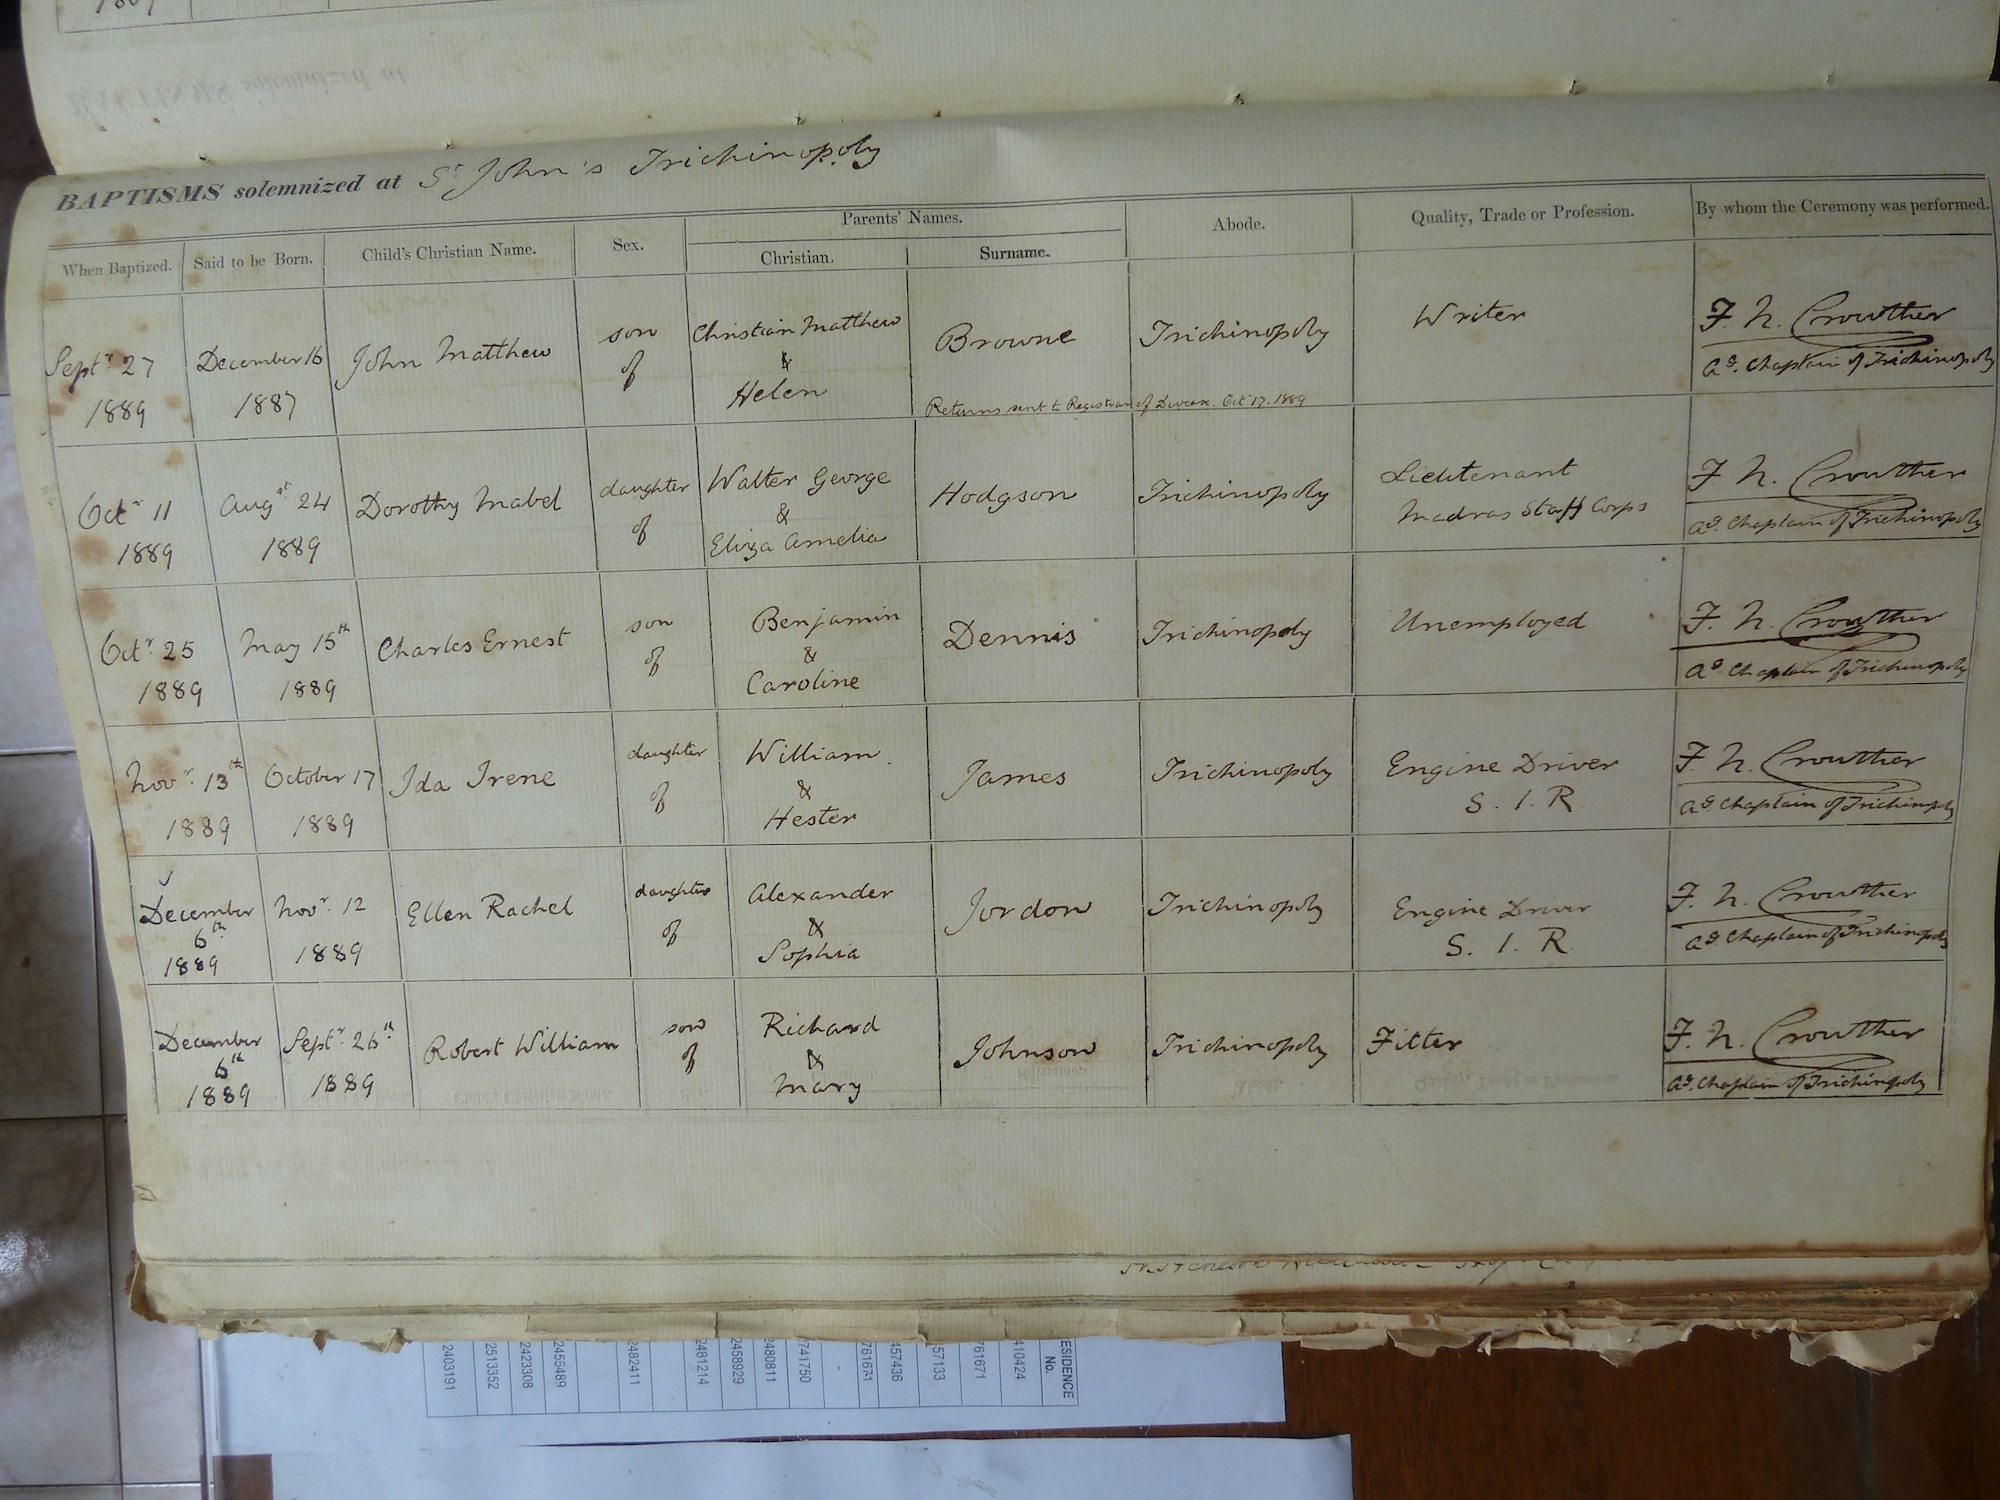 BAPTISMS solemnized at St John's Trichinopoly
When Baptized. Said to be Born. Child's Christian Name. Sex. Parents' Names. Abode. Quality, Trade or Profession. By whom the Ceremony was performed.
Christian. Surname.
Septr 27 1889 December 16 1887 John Matthew son of Christian Matthew & Helen Browne Trichinopoly Writer F. N. Crowther
Ag. Chaplain of Trichinopoly
Returns sent to Registrar of Diocese. Oct 17. 1889
Octr 11 1889 Augst 24 1889 Dorothy Mabel daughter of Walter George & Eliza Amelia Hodgson Trichinopoly Lieutenant Madras Staff Corps F. N. Crowther
Ag. Chaplain of Trichinopoly
Octr 25 1889 May 15th 1889 Charles Ernest son of Benjamin & Caroline Dennis Trichinopoly Unemployed F. N. Crowther
Ag. Chaplain of Trichinopoly
Novr 13th 1889 October 17 1889 Ida Irene daughter of William & Hester James Trichinopoly Engine Driver S. I. R F. N. Crowther
Ag. Chaplain of Trichinopoly
December 6th 1889 Novr 12 1889 Ellen Rachel daughter of Alexander & Sophia Jordon Trichinopoly Engine Driver S. I. R. F. N. Crowther
Ag. Chaplain of Trichinopoly
December 6th 1889 Septr 26th 1889 Robert William son of Richard & Mary Johnson Trichinopoly Fitter F. N. Crowther
Ag. Chaplain of Trichinopoly
ESIDENCE
No.
410424
761671
57133
457436
761671
741750
2480811
2458929
2481214
2482411
2455489
2423308
2513352
2403191